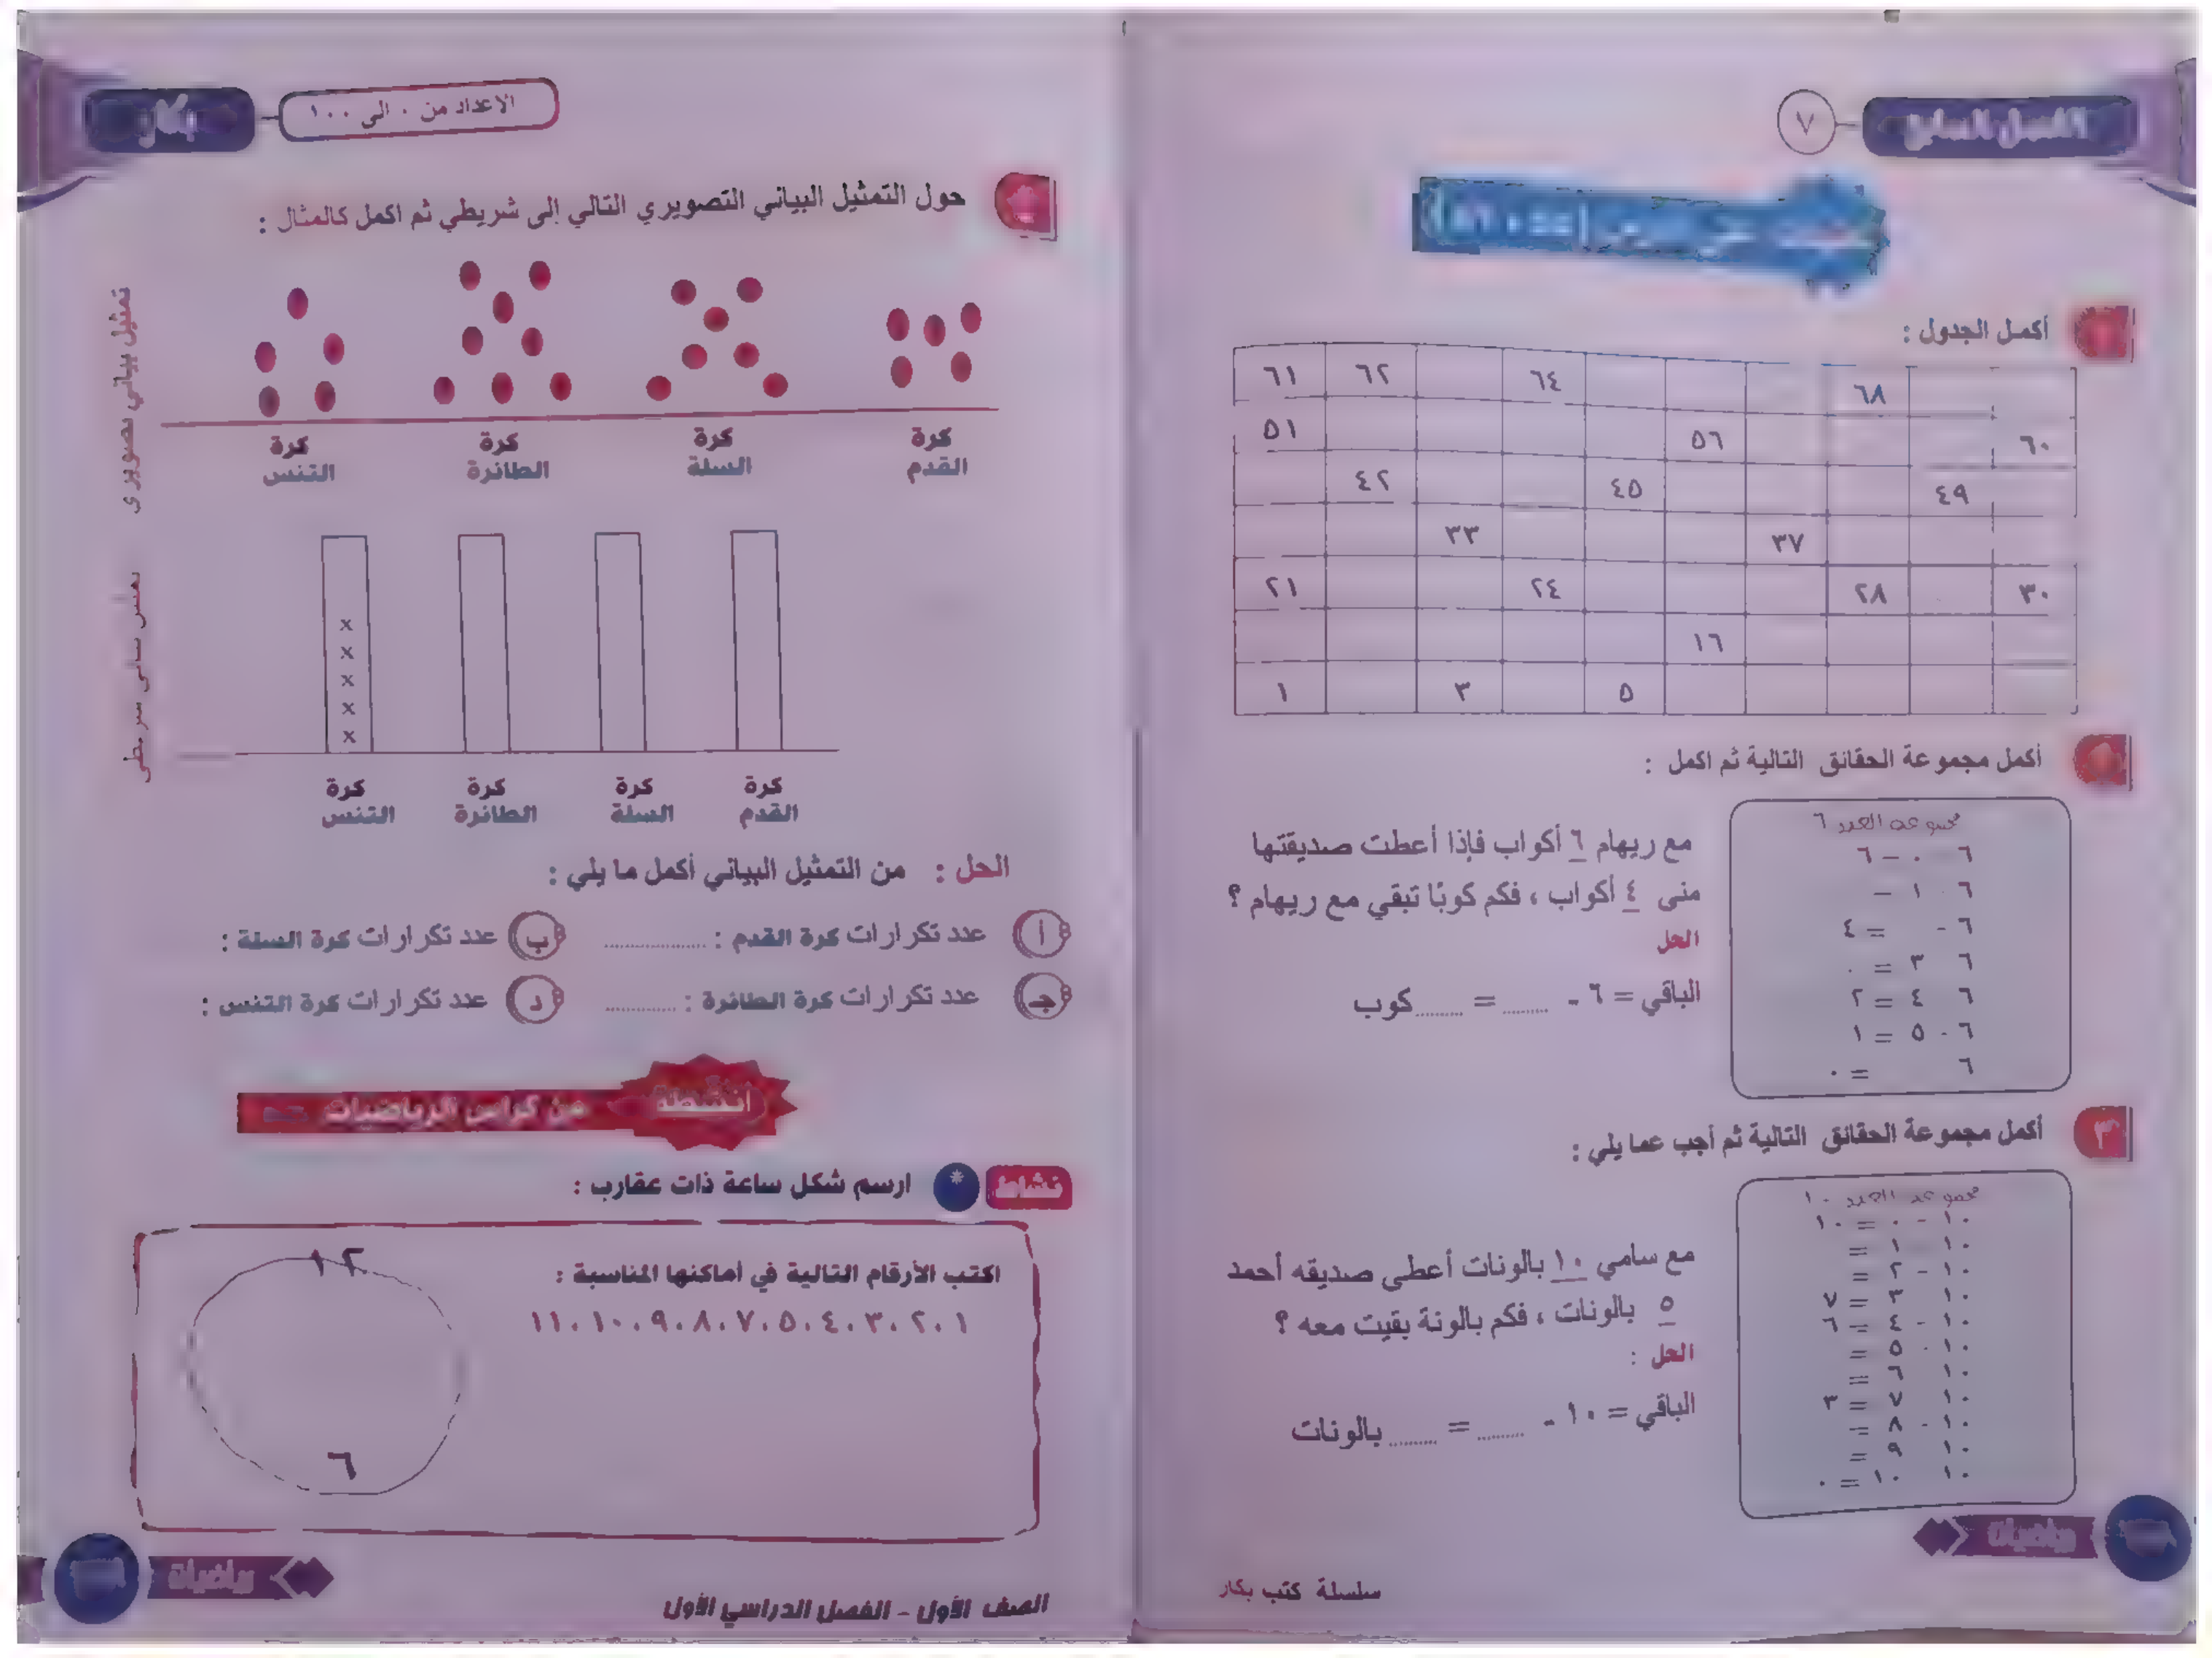 الفصل السابع
٧
أكمل الجدول :
٦١ ٦٢ ٦٤ ٦٨
٥١ ٥٦ ٦٠
٤٢ ٤٥ ٤٩
٣٣ ٣٧
٢١ ٢٤ ٢٨ ٣٠
١٦
١ ٣ ٥
أكمل مجموعة الحقائق التالية ثم اكمل :
مجموعة العدد ٦
٦ ٠ – ٦
٦ ١ –
٦ - = ٤
٦ ٣ = ٠
٦ ٤ = ٢
٦ - ٥ = ١
٦ = ٠
مع ريهام ٦ أكواب فإذا أعطت صديقتها
منى ٤ أكواب ، فكم كوبًا تبقي مع ريهام ؟
الحل
الباقي = ٦ - ......... = ......... كوب
٣ أكمل مجموعة الحقائق التالية ثم أجب عما يلي :
مجموعة العدد ١٠
١٠ - ٠ = ١٠
١٠ ١ =
١٠ - ٢ =
١٠ ٣ = ٧
١٠ - ٤ = ٦
١٠ - ٥ =
١٠ ٦ =
١٠ ٧ = ٣
١٠ - ٨ =
١٠ ٩ =
١٠ ١٠ = ٠
مع سامي ١٠ بالونات أعطى صديقه أحمد
٥ بالونات ، فكم بالونة بقيت معه ؟
الحل :
الباقي = ١٠ - ......... = ......... بالونات
رياضيات
سلسلة كتب بكار
بكار
الاعداد من ٠ الى ١٠٠
حول التمثيل البياني التصويري التالي إلى شريطي ثم اكمل كالمثال :
تمثيل بياني تصويرى
كرة القدم
كرة السلة
كرة الطائرة
كرة التنس
x
x
x
x
x
كرة القدم
كرة السلة
كرة الطائرة
كرة التنس
الحل : من التمثيل البياني أكمل ما يلي :
أ عدد تكرارات كرة القدم : .................. ب عدد تكرارات كرة السلة :
جـ عدد تكرارات كرة الطائرة : ............ د عدد تكرارات كرة التنس :
أنشطة من كراس الرياضيات
نشاط * ارسم شكل ساعة ذات عقارب :
اكتب الأرقام التالية في أماكنها المناسبة :
١ ، ٢ ، ٣ ، ٤ ، ٥ ، ٧ ، ٨ ، ٩ ، ١٠ ، ١١
١٢
٦
رياضيات
الصف الأول - الفصل الدراسي الأول